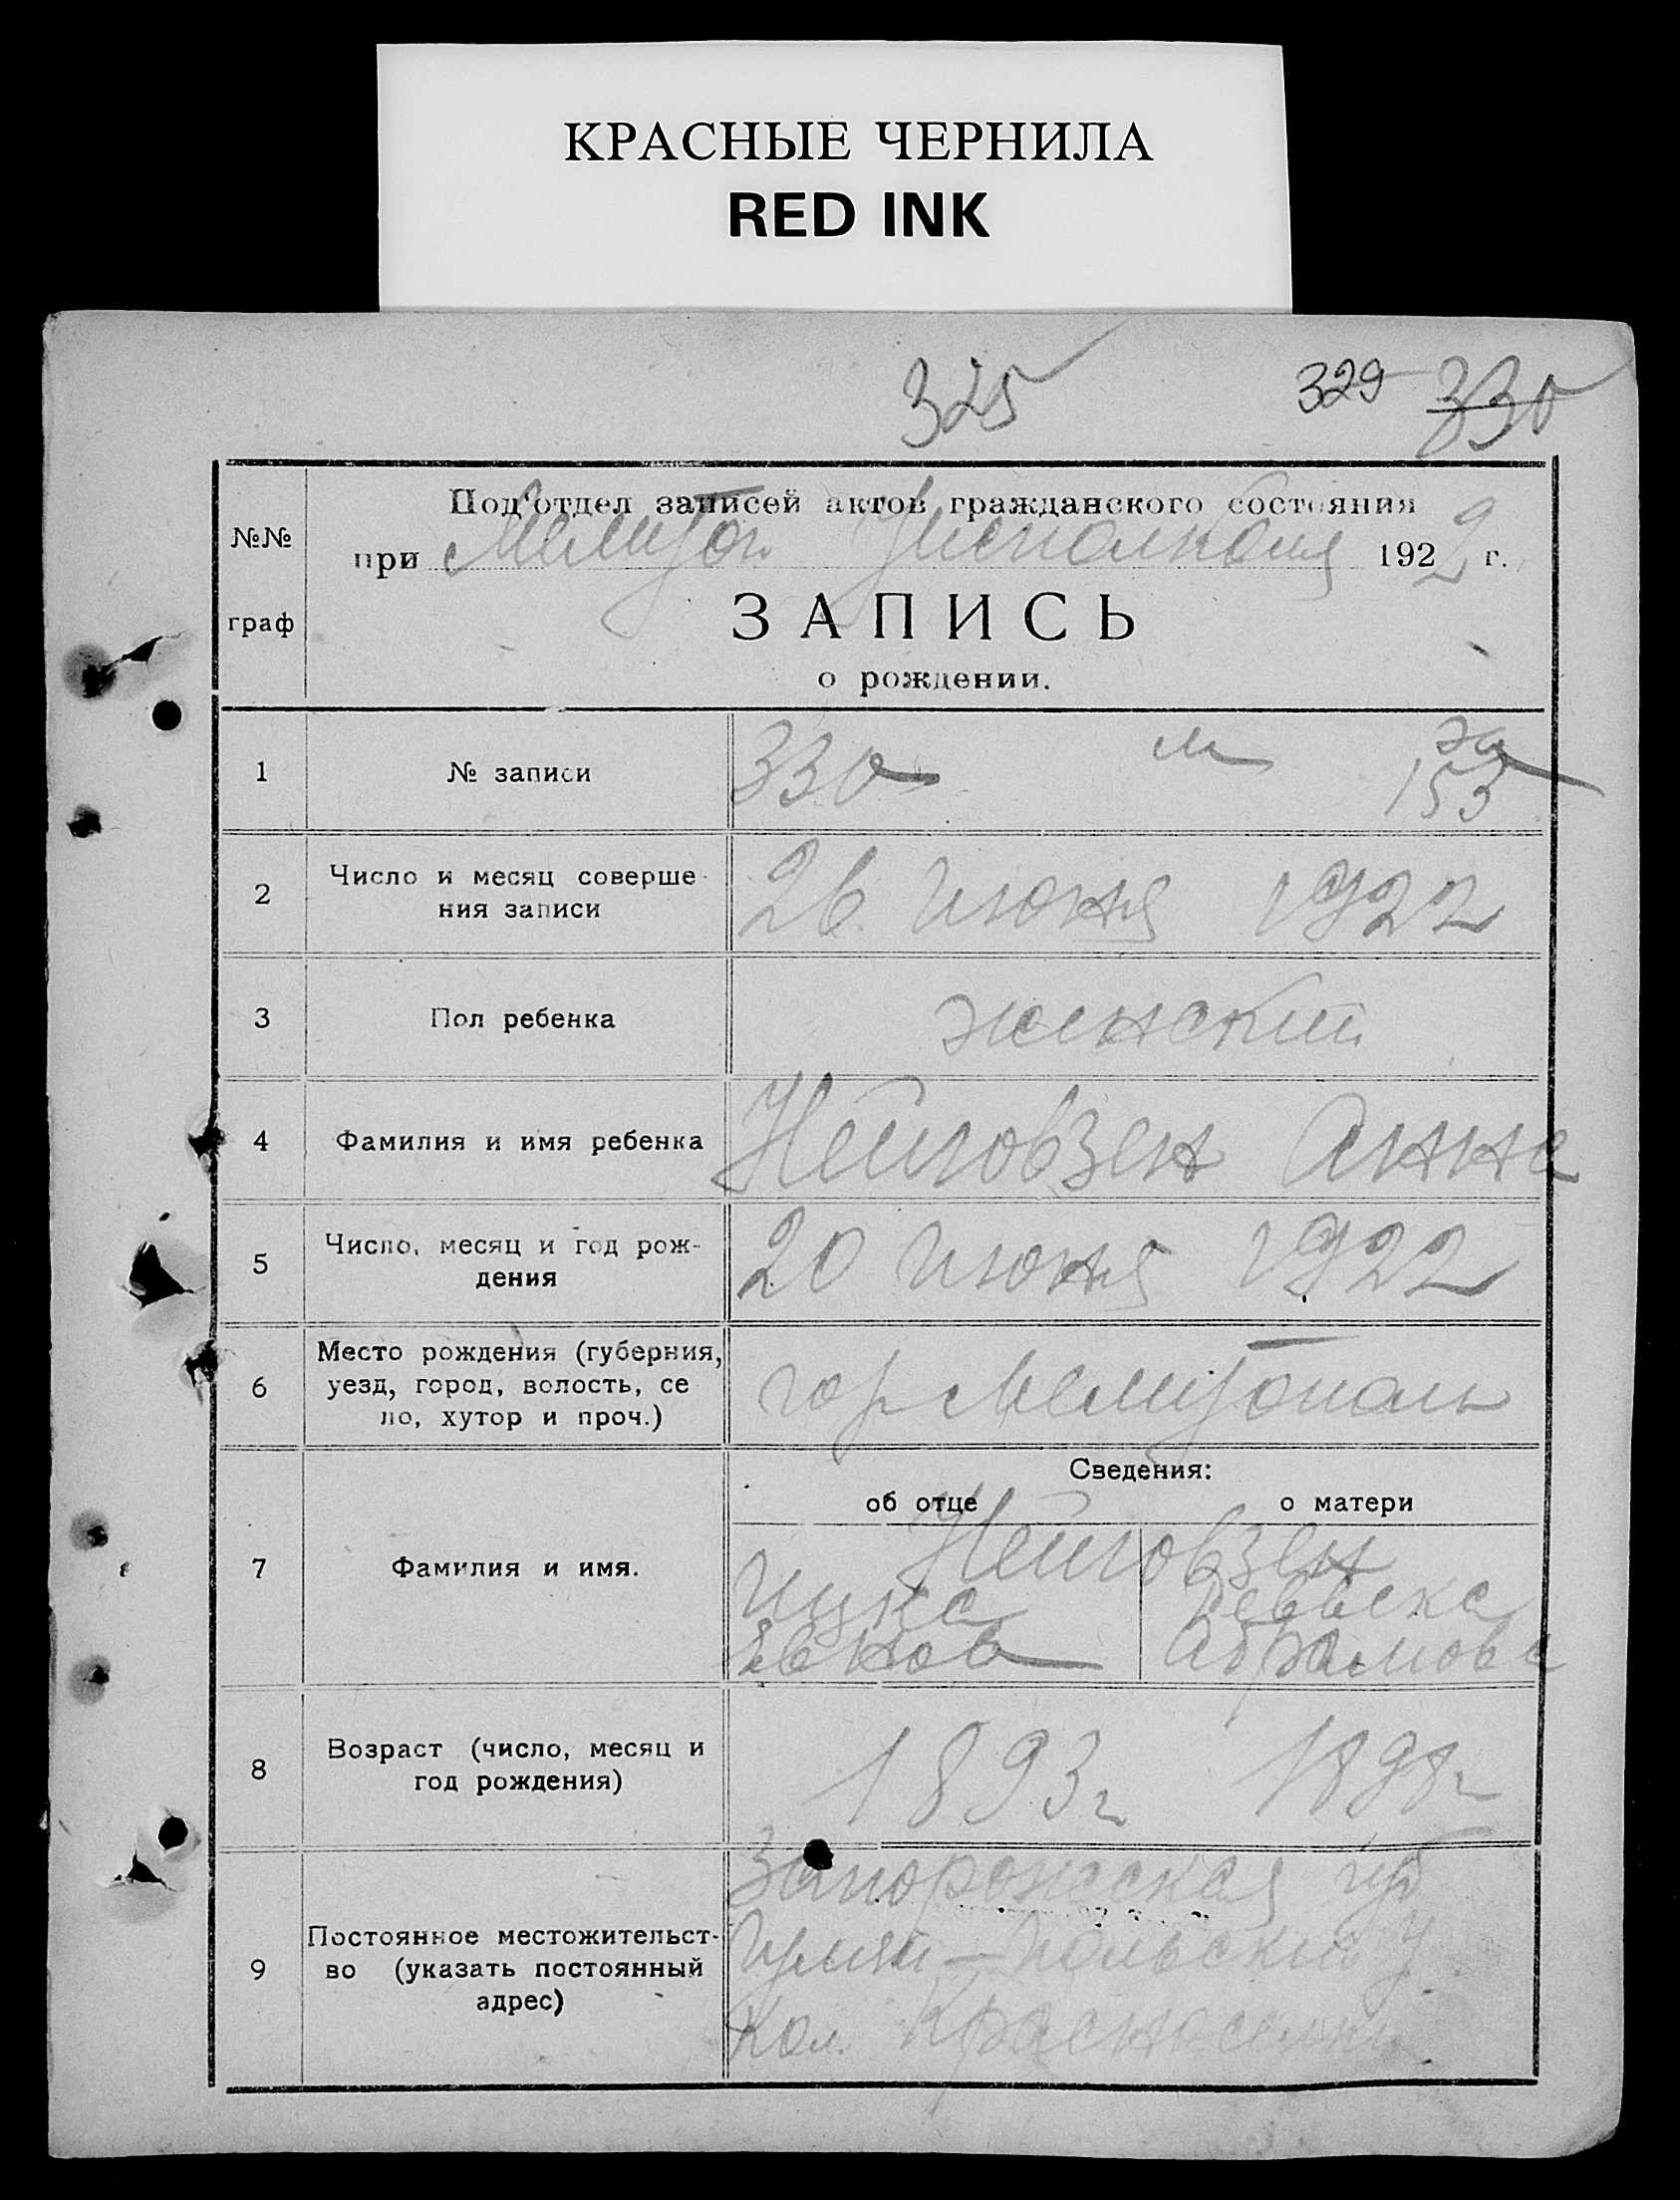 КРАСНЫЕ ЧЕРНИЛА
RED INK
325 329 330
№№ граф
Под'отдел записей актов гражданского состояния
при Мелитоп Уисполкома 1922 г.
ЗАПИСЬ
о рождении.
1 № записи 330 153
2 Число и месяц соверше-
ния записи 26 июня 1922
3 Пол ребенка женский
4 Фамилия и имя ребенка Нейговзен Анна
5 Число, месяц и год рож-
дения 20 июня 1922
6 Место рождения (губерния,
уезд, город, волость, се
ло, хутор и проч.) гор Мелитополь
Сведения:
об отце о матери
7 Фамилия и имя. Нейговзен
Ицка Ревьека
Абрамова
8 Возраст (число, месяц и
год рождения) 1893г 1898г
9 Постоянное местожительст-
во (указать постоянный
адрес)
Запорожская губ
Гуляй-Польский у.
Кол. Красноселки